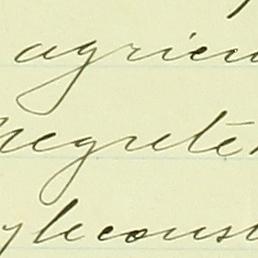 agricu
negrete
yleconst